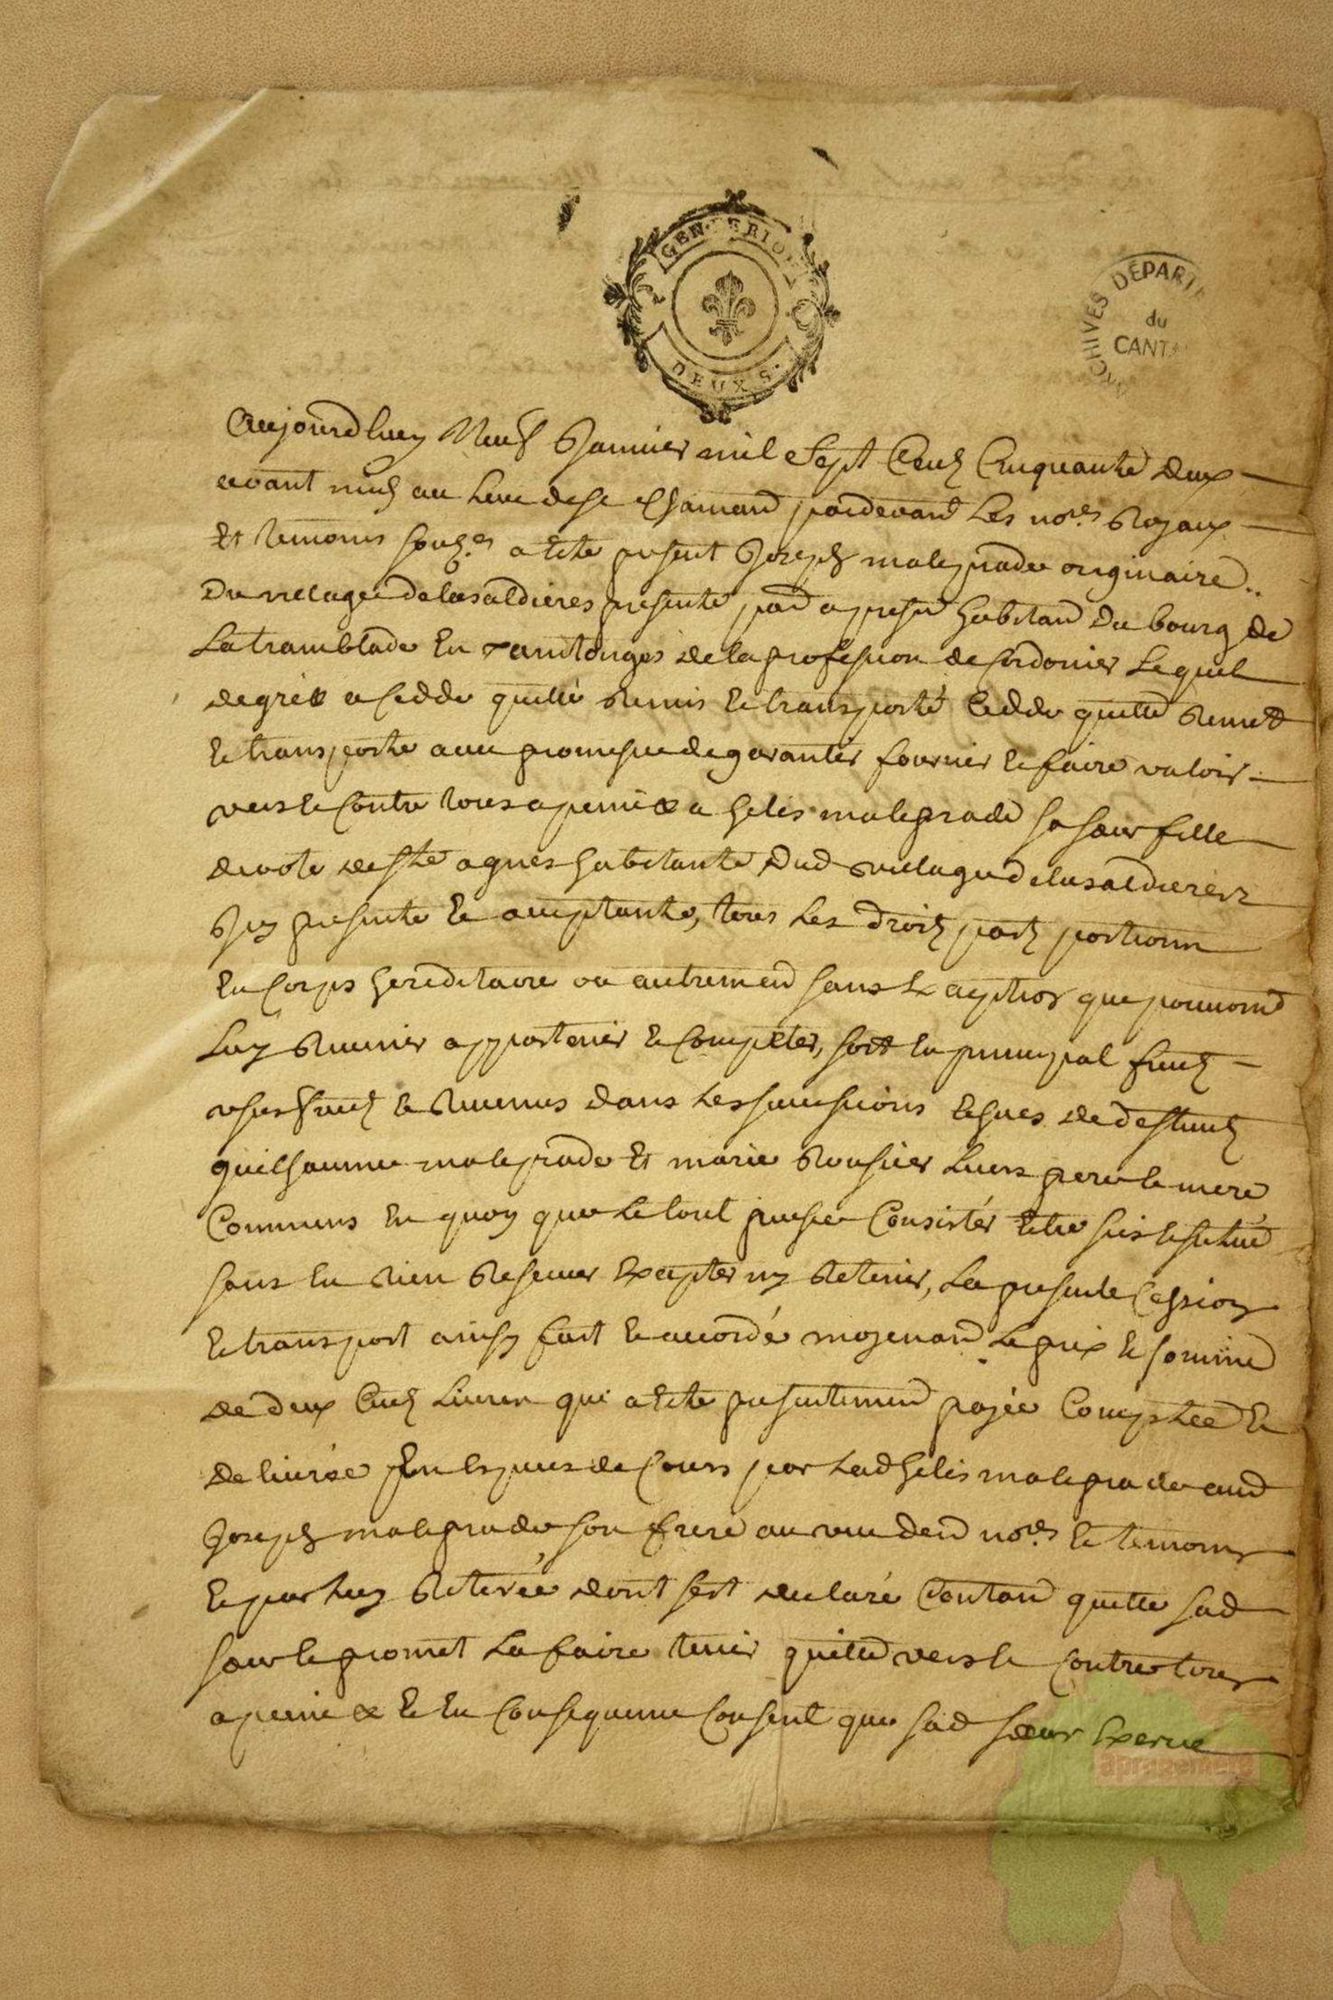 GEN. DE RIOM
DEUX S.
ARCHIVES DÉPART
du
CANT
Aujourdhuy Neuf Janvier mil Sept Cens Cinquante deux
avant midy au lieu de St Chamand pardevant Les nores Royaux
Et temoins sousnes a este present Joseph malegrade originaire
Du village de lassaldieres presente par a present habitand Du bourg de
La tramblade En xaintonges de la profession de Cordonier Lequel
de gré & a Cedde quitté Remis Et transporté Cedde quitte Remet
Et transporte avec promesse de garantir fournir Et faire valoir
vers Et Contre tous a peine & a helis malegrade sa sœur fille
devote de Ste agnes habitante Dud village de lassaldieres
Icy presente Et acceptante, tous Les Droits parts portions
En Corps hereditaire ou autrement sans Exception que pourront
Luy Revenir appartenir Et Competer, soit En principal fruits
usufruits Et Revenus dans Les successions Echues de deffunts
guilhaume malegrade Et marie Rousier Leurs pere Et mere
Communs En quoy que Le tout puisse Consister Etre sis Et situé
sans En Rien Reserver Excepter ny Retenir, La presente Cession
Et transport ainsy fait Et accordé moyenant Le prix Et somme
de deux Cens Livres qui a este presentement payée Comptée Et
delivrée En Especes de Cours par Lad helis malegrade aud
Joseph malegrade son frere au veu desd nores Et temoins
Et par Luy Retirée dont sest declaré Contant quitte sad
sœur Et promet La faire tenir quitte vers Et Contre tous
a peine & Et En Consequence Consent que sad sœur Exerce
aprogemere